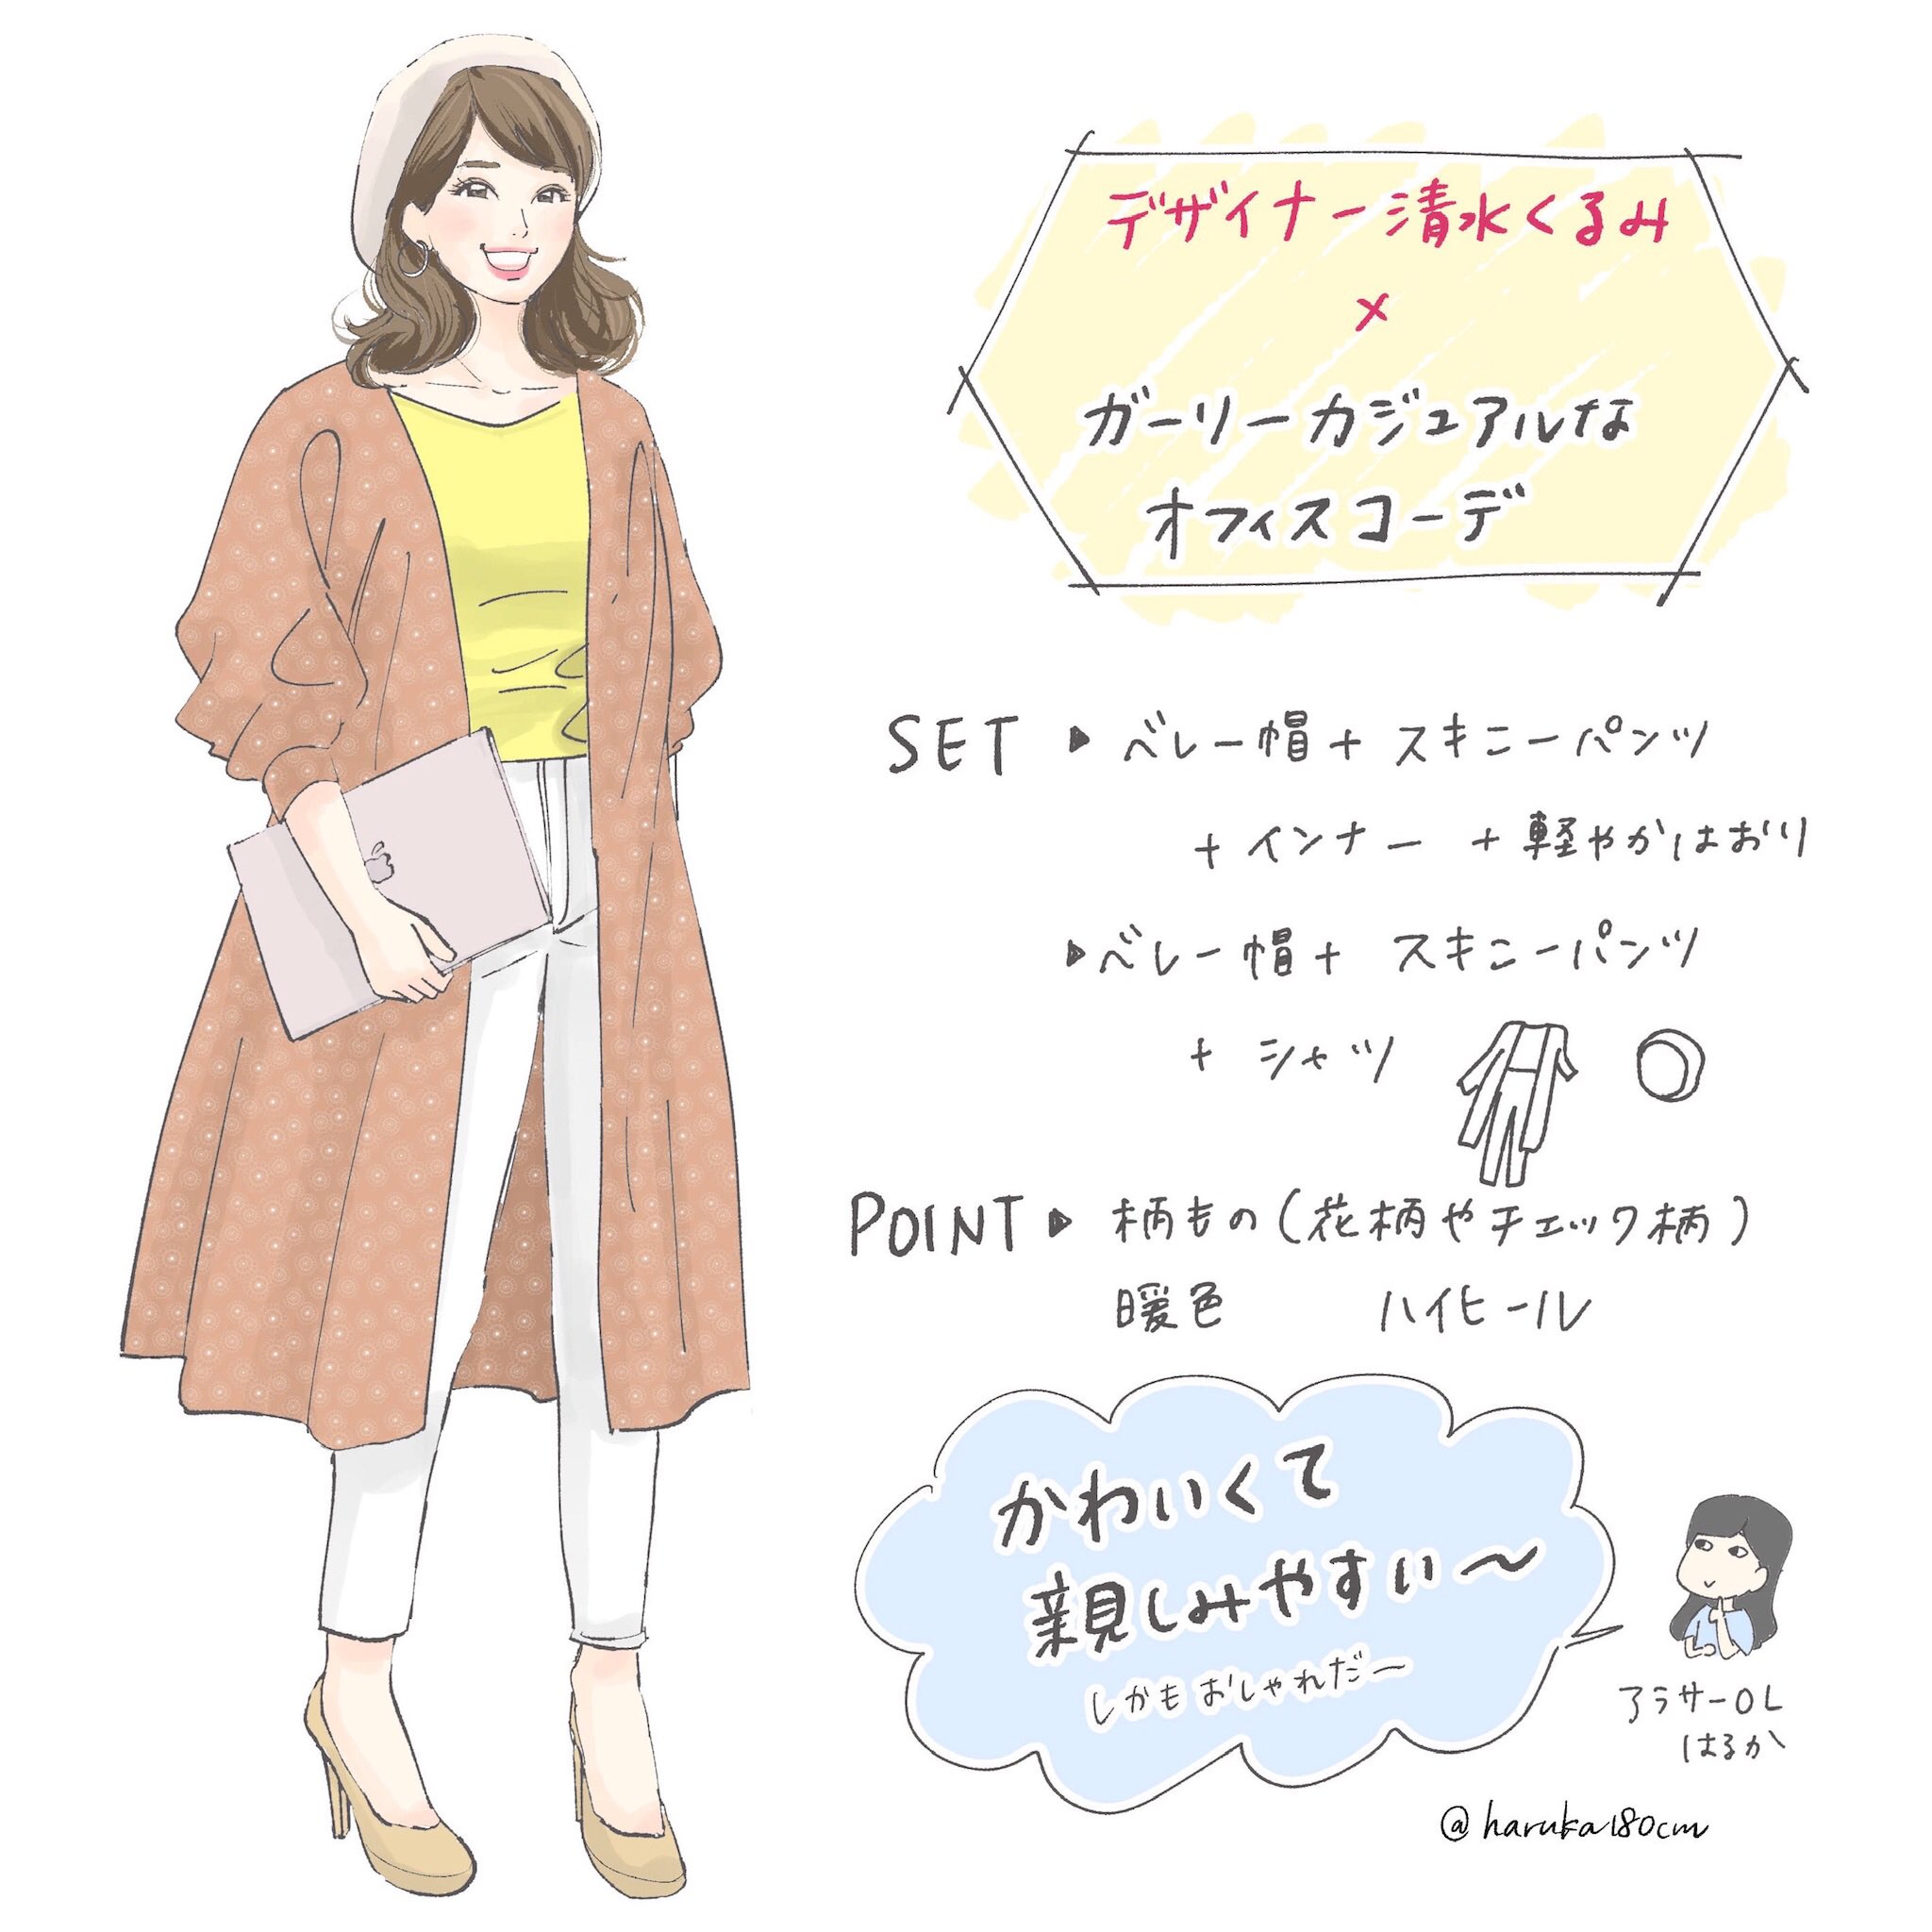 デザイナー清水くるみ
×
ガーリーカジュアルな
オフィスコーデ
SET ▶ ベレー帽+スキニーパンツ
+インナー +軽やかはおり
▶ベレー帽+スキニーパンツ
+シャツ
POINT▶ 柄もの(花柄やチェック柄)
暖色 ハイヒール
かわいくて
親しみやすい〜
しかもおしゃれだー
アラサーOL
はるか
@haruka180cm